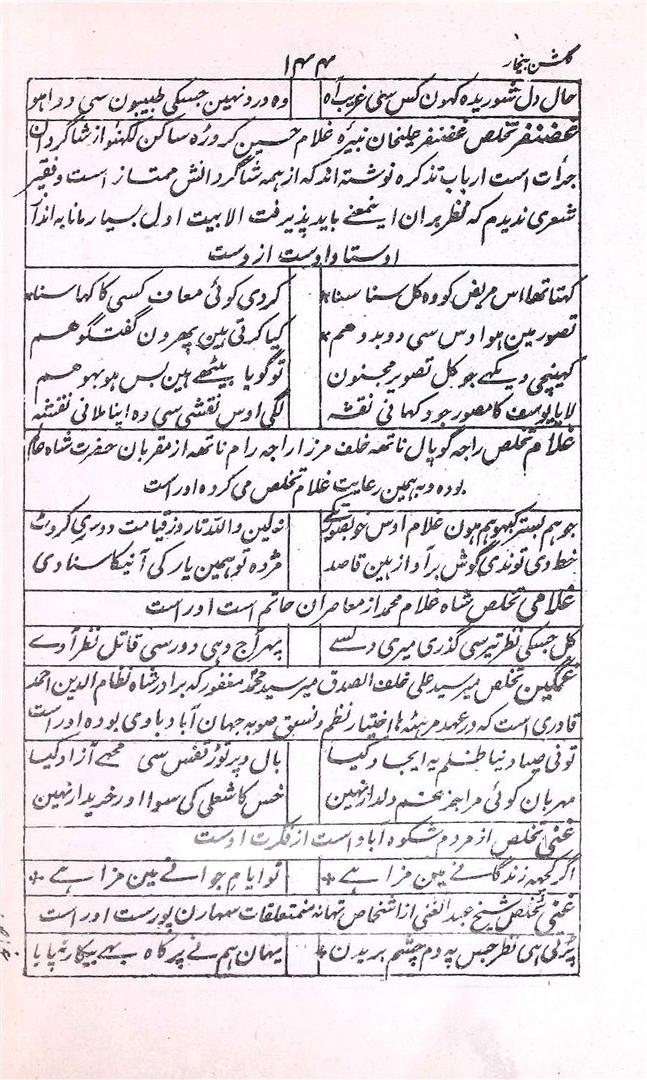 گلشن بیخار
۱۴۴
حال دل شوریدہ کہون کس سی غریب آہ وہ درد نہین جسکی طبیبون سی دوا ہو
غضنفر تخلص غضنفر علیخان نبیرۂ غلام حسین کروڑہ ساکن لکھنؤ از شاگردان
جرأت است ارباب تذکرہ نوشتہ اند کہ از ہمہ شاگردانش ممتاز است و فقیر
شعری ندیدم کہ نظر بران اینمعنے باید پذیرفت الا بیت اول بسیار مانا بہ انداز
اوستاد اوست ازوست
کہتا تھا اس مریض کو وہ کل سنا سنا * کردی کوئی معاف کسی کا کہا سنا *
تصور مین ہو اوس سی دوبدو ہم * کیا کرتی ہین پہرون گفتگو ہم
کہینچی دیکہے جو کل تصویر مجنون تو گویا بیٹھے ہین بس ہو بہو ہم
لایا یوسف کا مصور جو دکہانی نقشہ لگی اوس نقشی سی وہ اپنا ملانی نقشہ
غلام تخلص راجہ گوپال ناتھہ خلف مرزا راجہ رام ناتھہ از مقربان حضرت شاہ عالم
بودہ و بہمین رعایت غلام تخلص می کردہ اوراست
جو ہم بستر کبہو ہم ہون غلام اوس خوبصورتکے نہ لین واللہ تا روز قیامت دوسری کروٹ
خط دی تو ندی گوش بر آواز ہین قاصد مژدہ تو ہمین یار کی آنیکا سنا دی
غلامی تخلص شاہ غلام محمد از معاصران حاتم است اوراست
کل جسکی نظر تیر سی گذری میری دلسے پہر آج وہی دور سی قاتل نظر آوے
غمگین تخلص میر سید علی خلف الصدق میر سید محمد مغفور کہ برادر شاہ نظام الدین احمد
قادری است کہ در عہد مرہٹہ ہا اختیار نظم و نسق صوبہ جہان آباد باوی بودہ اوراست
تونی صیاد نیا ظلم یہ ایجاد کیا بال و پر توڑ قفس سی مجھے آزاد کیا
مہربان کوئی مرا جز غم دلدار نہین خس کا شعلی کی سوا اور خریدار نہین
غنی تخلص از مردم شکوہ آباد است از فکرت اوست
اگر کچہہ زندگانے مین مزا ہے * تو ایام جوانے مین مزا ہے *
غنی تخلص شیخ عبد الغنی از اشخاص تہانہ من متعلقات سہارنپورست اوراست
پڑتی ہی نظر جس پہ دم چشم بریدن * یہان ہم نے پر کاہ بہے بیکار نہ پایا